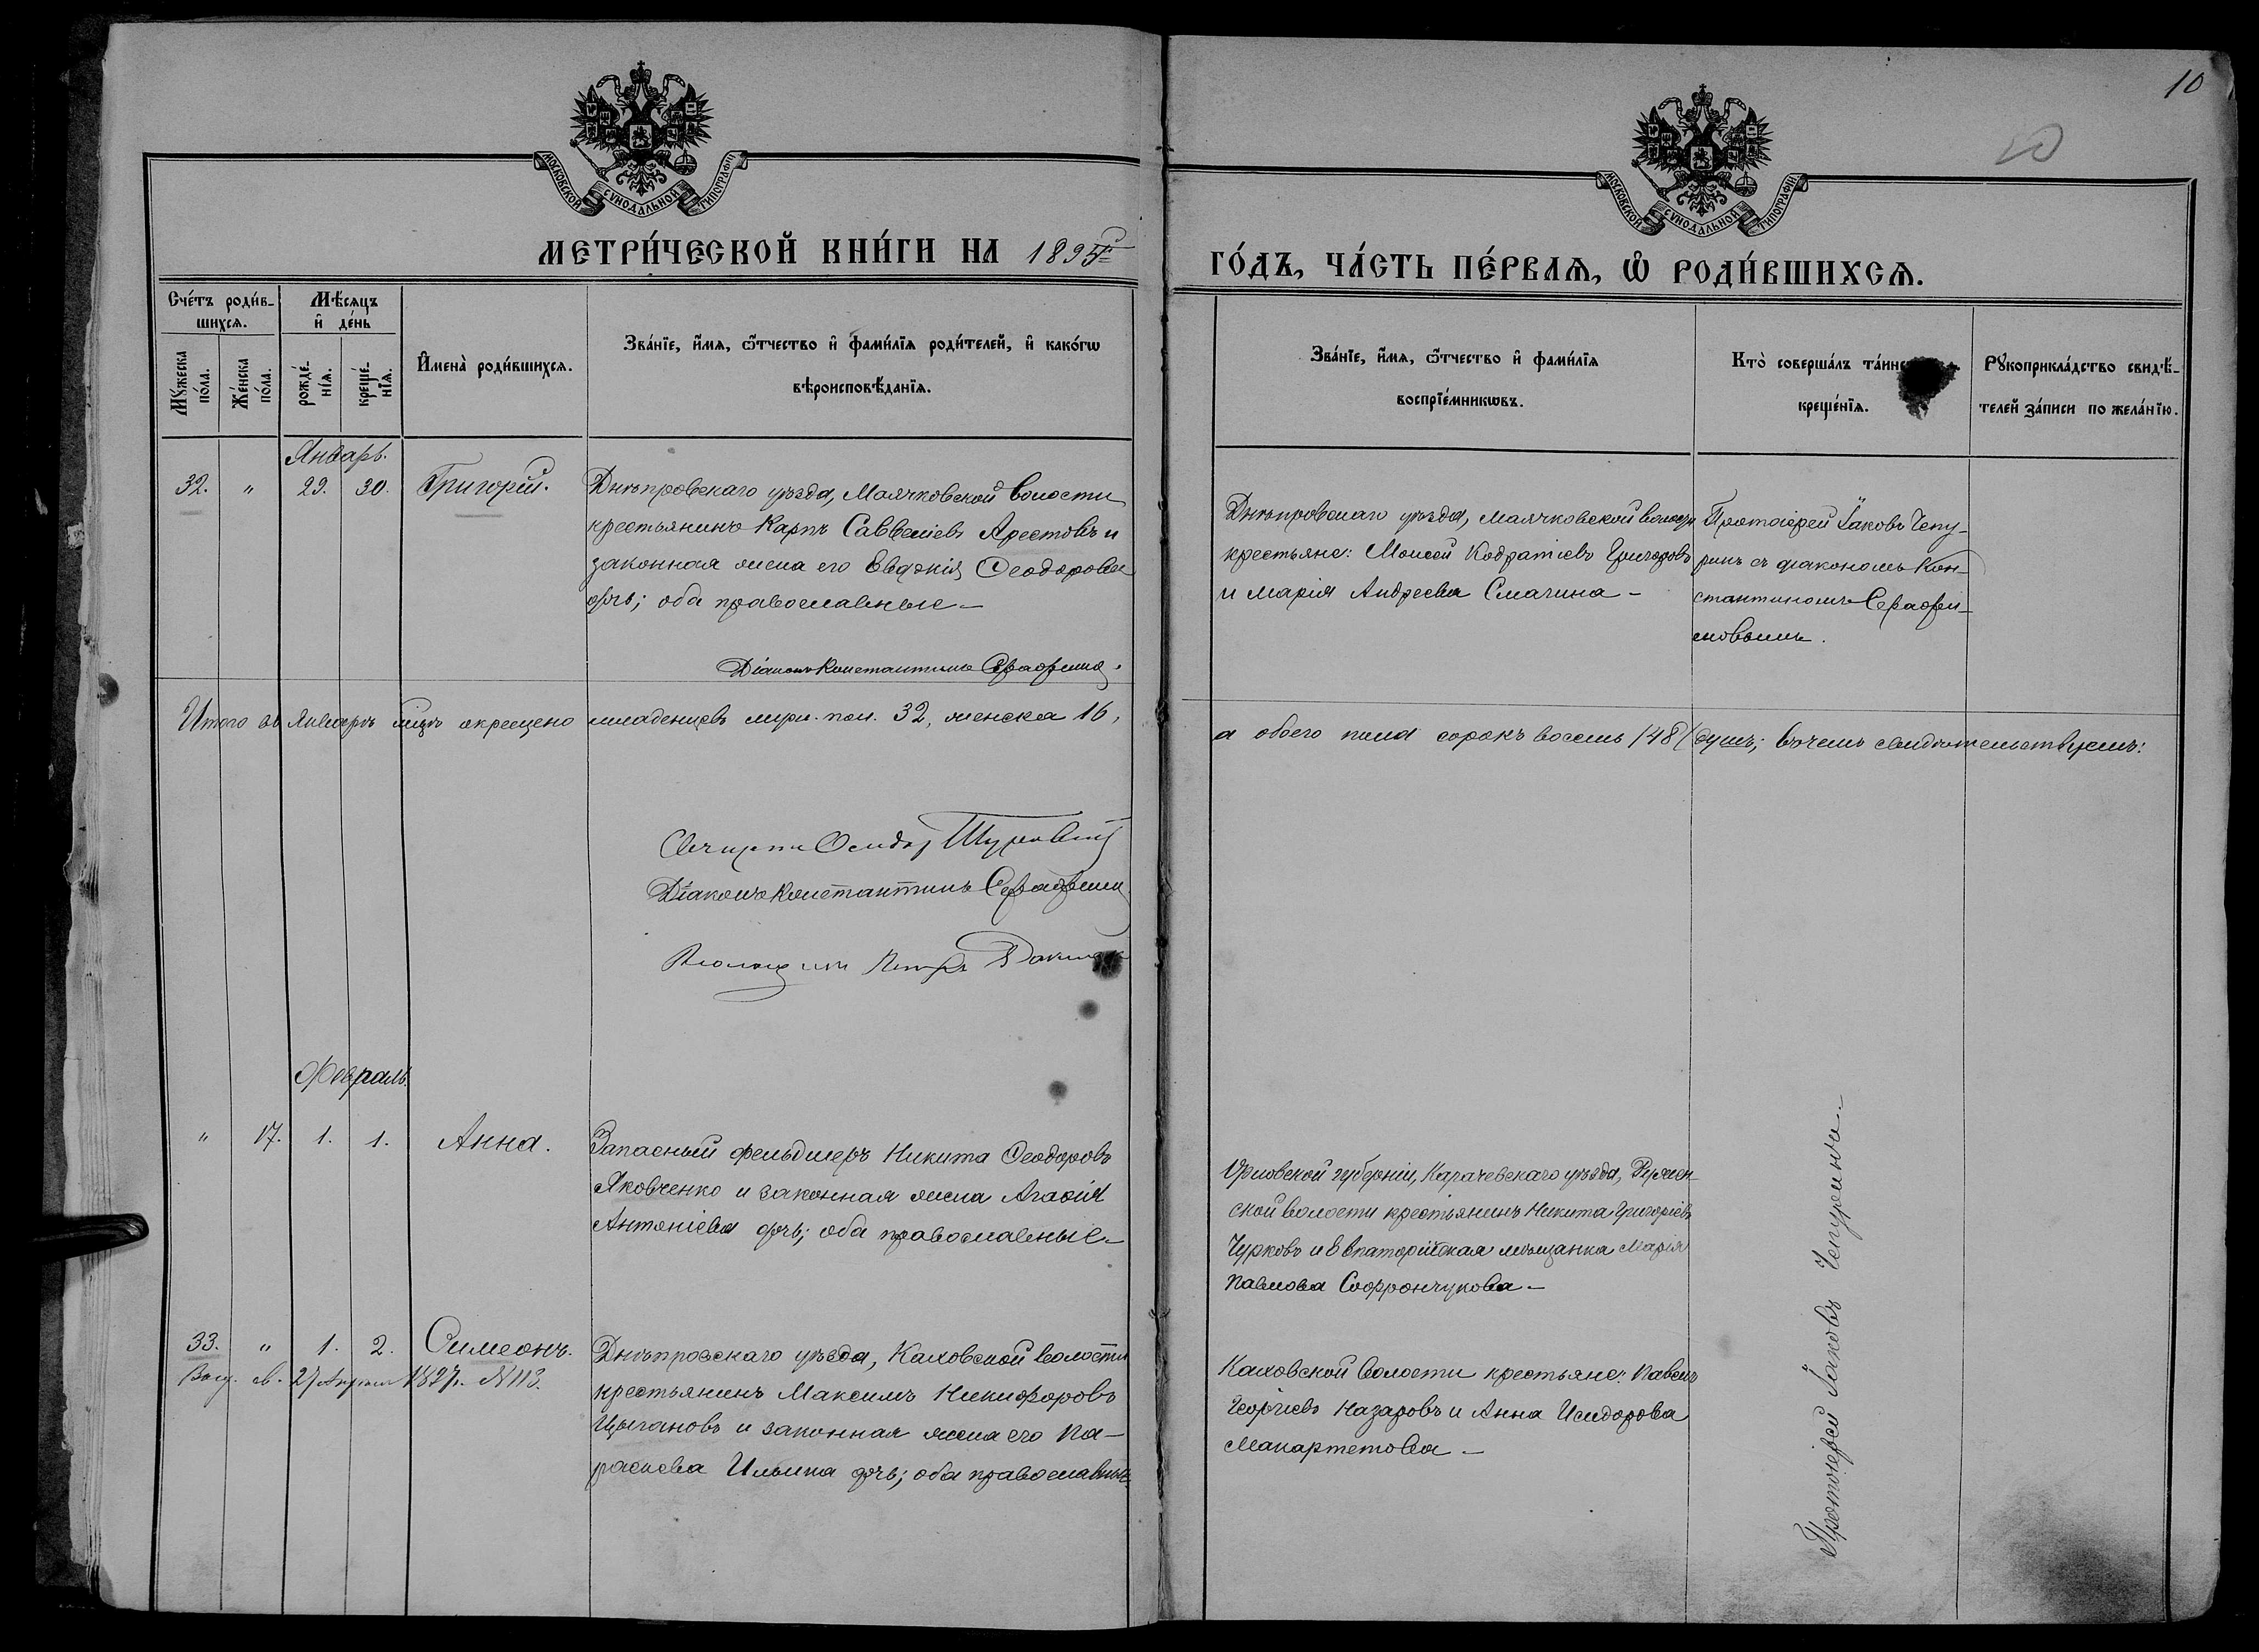 10
10
МОСКОВСКОЙ СУНОДАЛЬНОЙ ТИПОГРАФІИ
МОСКОВСКОЙ СУНОДАЛЬНОЙ ТИПОГРАФІИ
МЕТРИ́ЧЕСКОЙ КНИ́ГИ НА 1895й
ГО́ДЪ, ЧА́СТЬ ПЕ́РВАѦ, Ѡ РОДИ́ВШИХСѦ.
Сче́тъ роди́в-
шихсѧ.
Мѣ́сѧцъ
и҆ де́нь
Мꙋ́жеска
по́ла.
Же́нска
по́ла.
рожде́-
нїѧ.
креще́-
нїѧ.
И҆мена̀ роди́вшихсѧ.
Зва́нїе, и҆́мѧ, ѻ҆́тчество и҆ фами́лїѧ роди́телей, и҆ како́гѡ
вѣроисповѣ́данїѧ.
Зва́нїе, и҆́мѧ, ѻ҆́тчество и҆ фами́лїѧ
воспрїе́мникѡвъ.
Кто̀ соверша́лъ та́инс
креще́нїѧ.
Рꙋкоприкла́дство свидѣ́-
телей за́писи по жела́нїю.
Январь.
32. " 29. 30. Григорій. Днѣпровскаго уѣзда, Маячковской волости
крестьянинъ Карпъ Саввеліевъ Арестовъ и
законная жена его Евдокія Ѳеодорова
дочь; оба православные –
Діаконъ Константинъ Серафимовъ.
Днѣпровскаго уѣзда, Маячковской волости
крестьяне: Моисей Кодратіевъ Григоровъ
и Марія Андреева Смагина –
Протоіерей Іаковъ Чепу-
ринъ съ діакономъ Кон-
стантиномъ Серафи-
мовымъ.
Итого въ Январѣ мцѣ окрещено младенцевъ муж. пол. 32, женска 16,
а обоего пола сорокъ восемь /48/ душъ; въ чемъ свидѣтельствуемъ:
Діаконъ Константинъ Серафимовъ
Февраль.
" 17. 1. 1. Анна. Запасный фельдшеръ Никита Ѳеодоровъ
Яковченко и законная жена Агаѳія
Антоніева дочь; оба православные –
Орловской губерніи, Карачевскаго уѣзда,
ской волости крестьянинъ Никита Григоріевъ
Чурковъ и Евпаторійская мѣщанка Марія
Павлова Софрончукова –
33. " 1. 2. Симеонъ. Днѣпровскаго уѣзда, Каховской волости
Выд. м. 27 Апрѣля 1897г. №113.
крестьянинъ Максимъ Никифоровъ
Цыгановъ и законная жена его Па-
раскева Ильина дочь; оба православные.
Каховской волости крестьяне: Павелъ
Георгіевъ Назаровъ и Анна Исидорова
Макартетова –
Протоіерей Іаковъ Чепуринъ.–